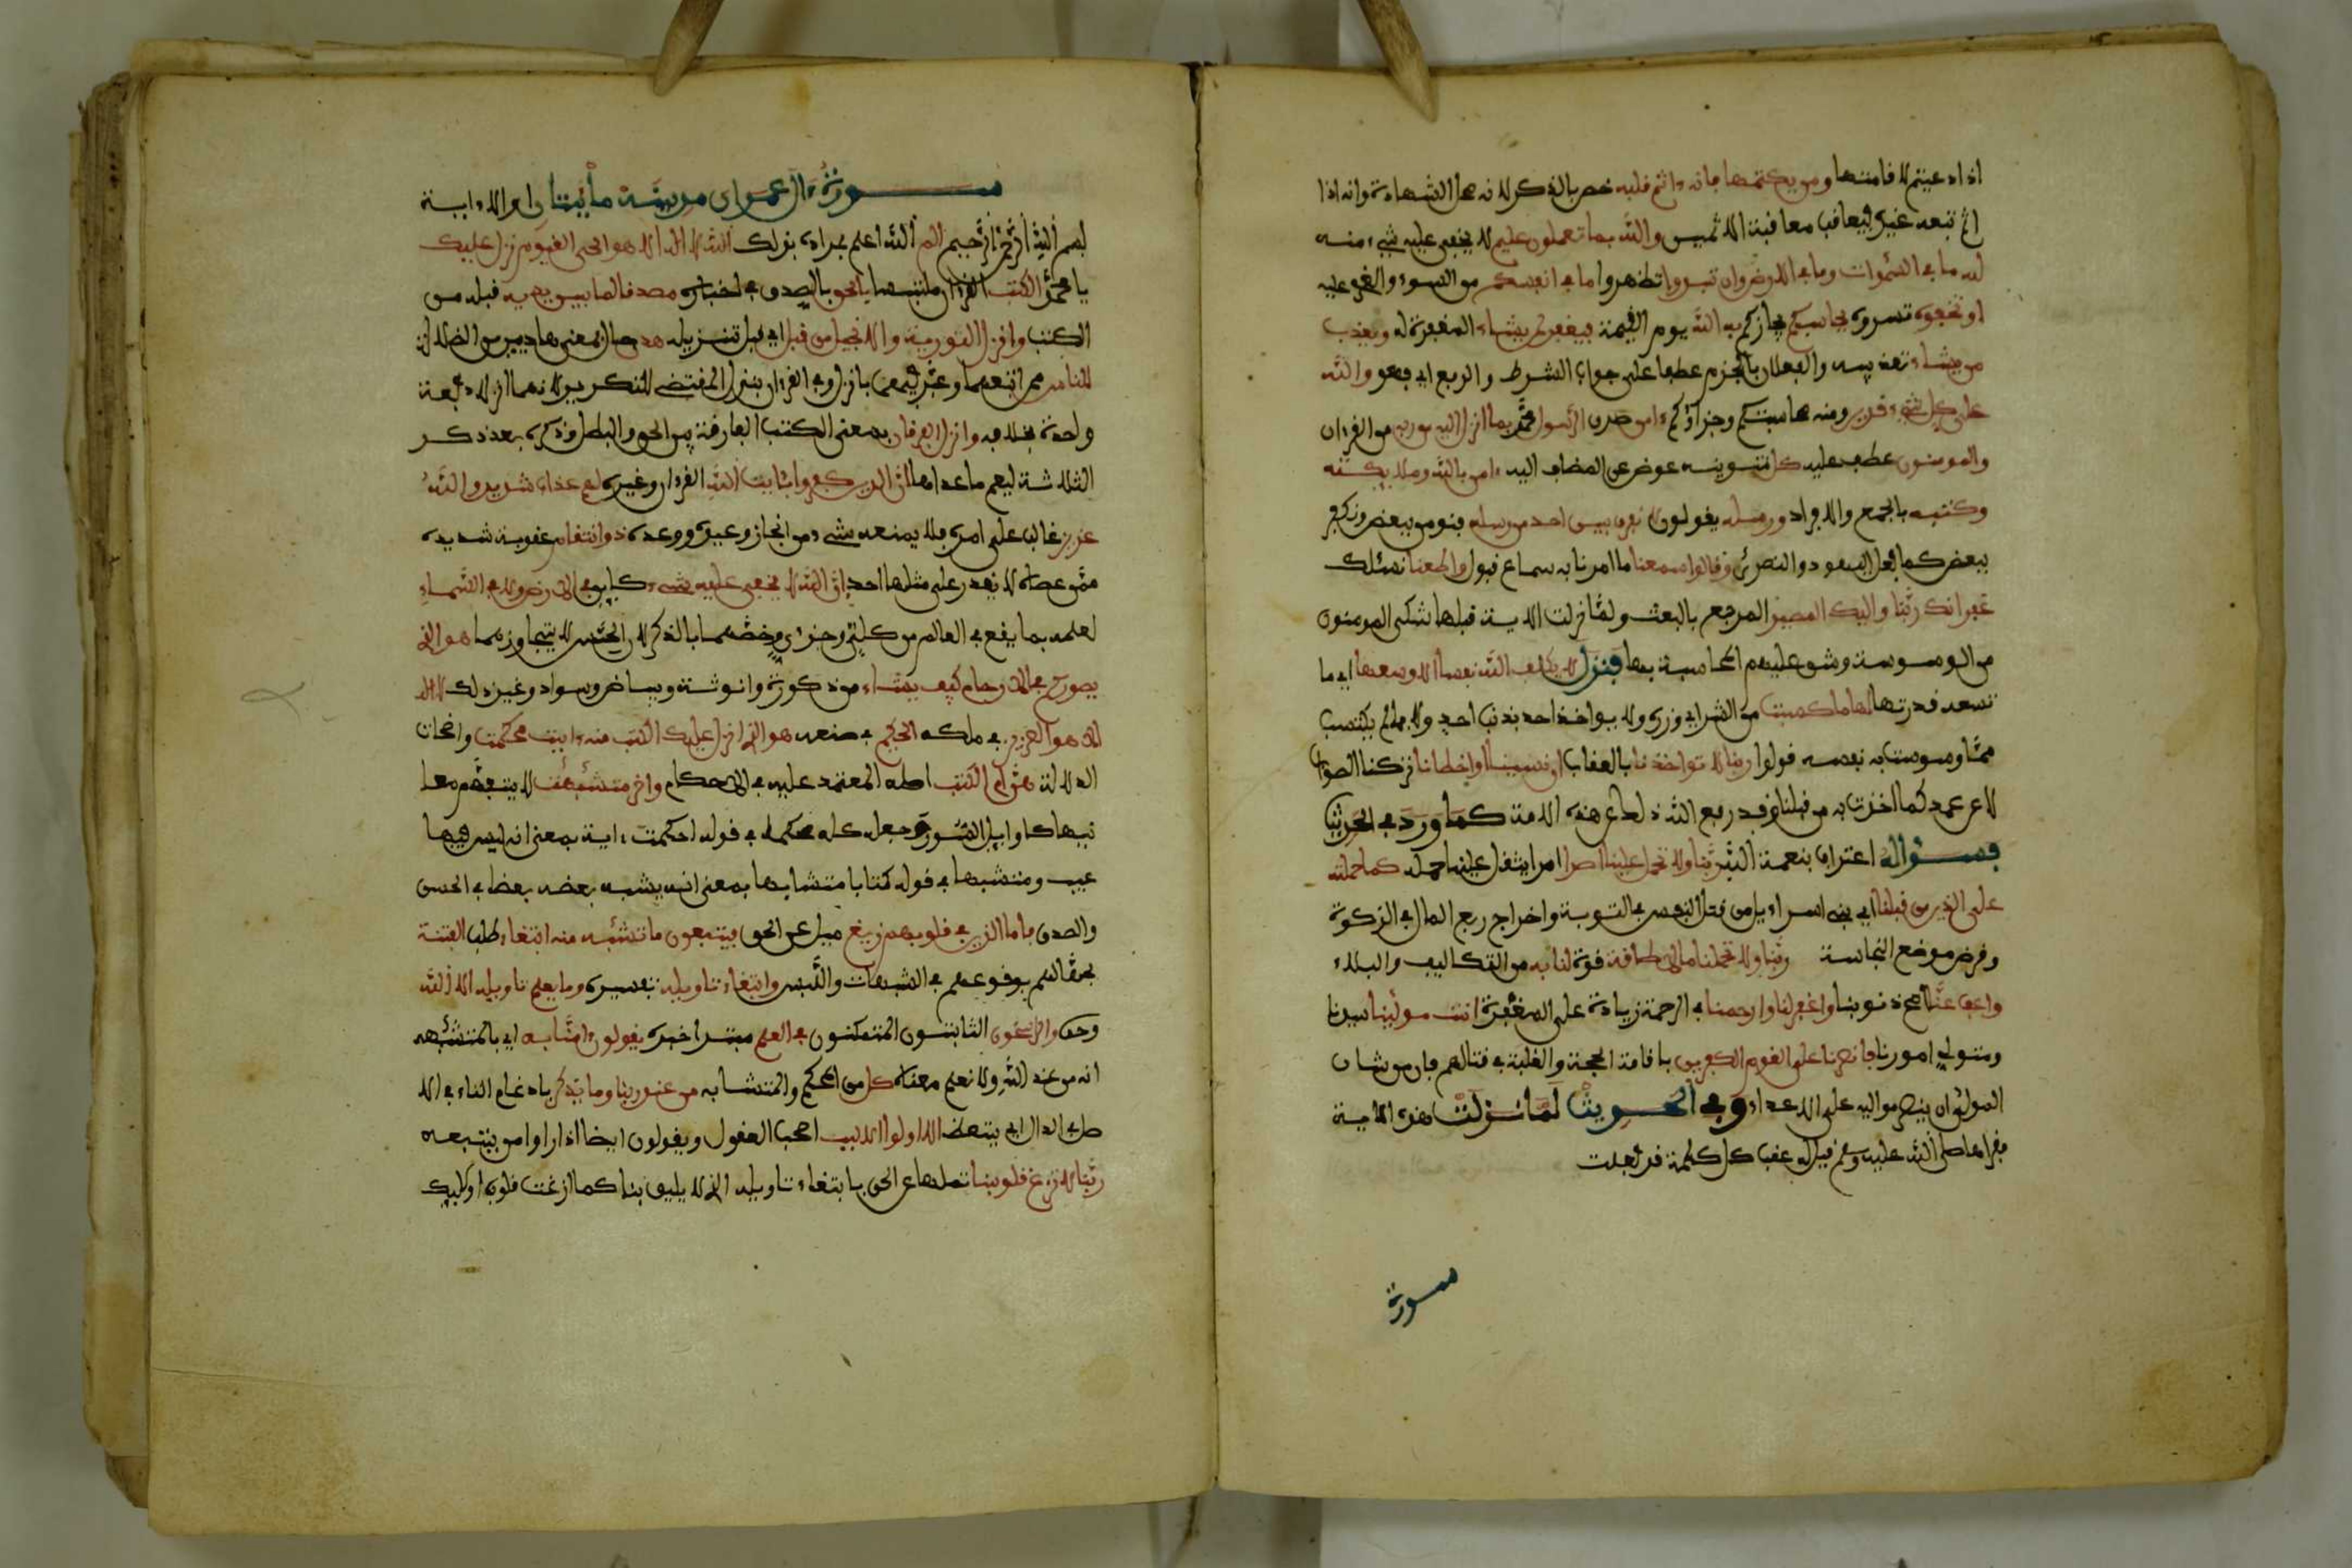 اذا دعيتم لاقامتها ومن يكتمها فانه ءاثم قلبه خص بالذكر لانه محل الشهادة وانه اذا
اثم تبعه غيره فيعاقب معاقبة الاثمين والله بما تعملون عليم لا يخفى عليه شيء منه
لله ما في السموات وما في الارض وان تبدوا تظهروا ما في انفسكم من السوء والعزم عليه
او تخفوه تسروه يحاسبكم يجازكم به الله يوم القيمة فيغفر لمن يشاء المغفرة له ويعذب
من يشاء تعذيبه والفعلان بالجزم عطفا على جواب الشرط والرفع اي فهو والله
على كل شيء قدير ومنه محاسبتكم وجزاؤكم ءامن صدق الرسول محمد بما انزل اليه من ربه من القرءان
والمومنون عطف عليه كل تنوينه عوض عن المضاف اليه ءامن بالله وملائكته
وكتبه بالجمع والافراد ورسله يقولون لا نفرق بين احد من رسله فنومن ببعض ونكفر
ببعض كما فعل اليهود والنصرى وقالوا سمعنا ما امرنا به سماع قبول واطعنا نسئلك
غفرانك ربنا واليك المصير المرجع بالبعث ولما نزلت الاية قبلها شكى المومنون
من الوسوسة وشق عليهم المحاسبة بها فنزل لا يكلف الله نفسا الا وسعها اي ما
تسعه قدرتها لها ما كسبت من الشر اي وزره ولا يواخذ احد بذنب احد ولا بما لم يكتسب
مما وسوست به نفسه قولوا ربنا لا تواخذنا بالعقاب ان نسينا او اخطانا تركنا الصواب
لا عن عمد كما اخذت به من قبلنا وقد رفع الله ذلك عن هذه الامة كما ورد في الحديث
فسؤاله اعتراف بنعمة الله ربنا ولا تحمل علينا اصرا امرا يثقل علينا حمله كما حملته
على الذين من قبلنا اي بني اسراءيل من قتل النفس في التوبة واخراج ربع المال في الزكوة
وقرض موضع النجاسة ربنا ولا تحملنا ما لا طاقة قوة لنا به من التكاليف والبلاء
واعف عنا امح ذنوبنا واغفر لنا وارحمنا في الرحمة زيادة على المغفرة انت مولينا سيدنا
ومتولي امورنا فانصرنا على القوم الكفرين باقامة الحجة والغلبة في قتالهم فان من شان
المولى ان ينصر مواليه على الاعداء وفي الحديث لما نزلت هذه الاية
فقراها صلى الله عليه وسلم قيل له عقب كل كلمة قد فعلت
سورة
سورة ءال عمران مدنية مائتان او الا ءاية
بسم الله الرحمن الرحيم الم الله اعلم بمراده بذلك الله لا اله الا هو الحي القيوم نزل عليك
يا محمد الكتب القرءان ملتبسا بالحق بالصدق في اخباره مصدقا لما بين يديه قبله من
الكتب وانزل التورية والانجيل من قبل اي قبل تنزيله هدى حال بمعنى هاديين من الضلالة
للناس ممن اتبعهما وعبر فيهما بانزل وفي القرءان بنزل المقتضي للتكرير لانهما انزلا دفعة
واحدة بخلافه وانزل الفرقان بمعنى الكتب الفارقة بين الحق والبطل وذكره بعد ذكر
الثلاثة ليعم ما عداها ان الذين كفروا بئايت الله القرءان وغيره لهم عذاب شديد والله
عزيز غالب على امره فلا يمنعه شيء من انجاز وعيده ووعده ذو انتقام عقوبة شديدة
ممن عصاه لا يقدر على مثلها احد ان الله لا يخفى عليه شيء كاين في الارض ولا في السماء
لعلمه بما يقع في العالم من كلي وجزءي وخصهما بالذكر لان الحس لا يتجاوزهما هو الذي
يصوركم في الارحام كيف يشاء من ذكورة وانوثة وبياض وسواد وغير ذلك لا اله
الا هو العزيز في ملكه الحكيم في صنعه هو الذي انزل عليك الكتب منه ءايت محكمت واضحات
الدلالة هن ام الكتب اصله المعتمد عليه في الاحكام واخر متشبهت لا يتفهم معا
نيها كاوايل السور وجعل كله محكما في قوله احكمت ءاية بمعنى انه ليس فيها
عيب ومتشبها في قوله كتابا متشابها بمعنى انه يشبه بعضه بعضا في الحسن
والصدق فاما الذين في قلوبهم زيغ ميل عن الحق فيتبعون ما تشبه منه ابتغاء طلب الفتنة
بجهالهم بوقوعهم في الشبهات واللبس وابتغاء تاويله تفسيره وما يعلم تاويله الا الله
وحده والرسخون الثابتون المتمكنون في العلم مبتدا خبره يقولون ءامنا به اي بالمتشبه
انه من عند الله ولا نعلم معناه كل من المحكم والمتشابه من عند ربنا وما يذكر بادغام التاء في الا
صل في الذال اي يتعظ الا اولوا الالبب اصحب العقول ويقولون ايضا اذا راوا من يتبعه
ربنا لا تزغ قلوبنا تملها عن الحق بابتغاء تاويله الذي لا يليق بنا كما ازغت قلوب اوليك